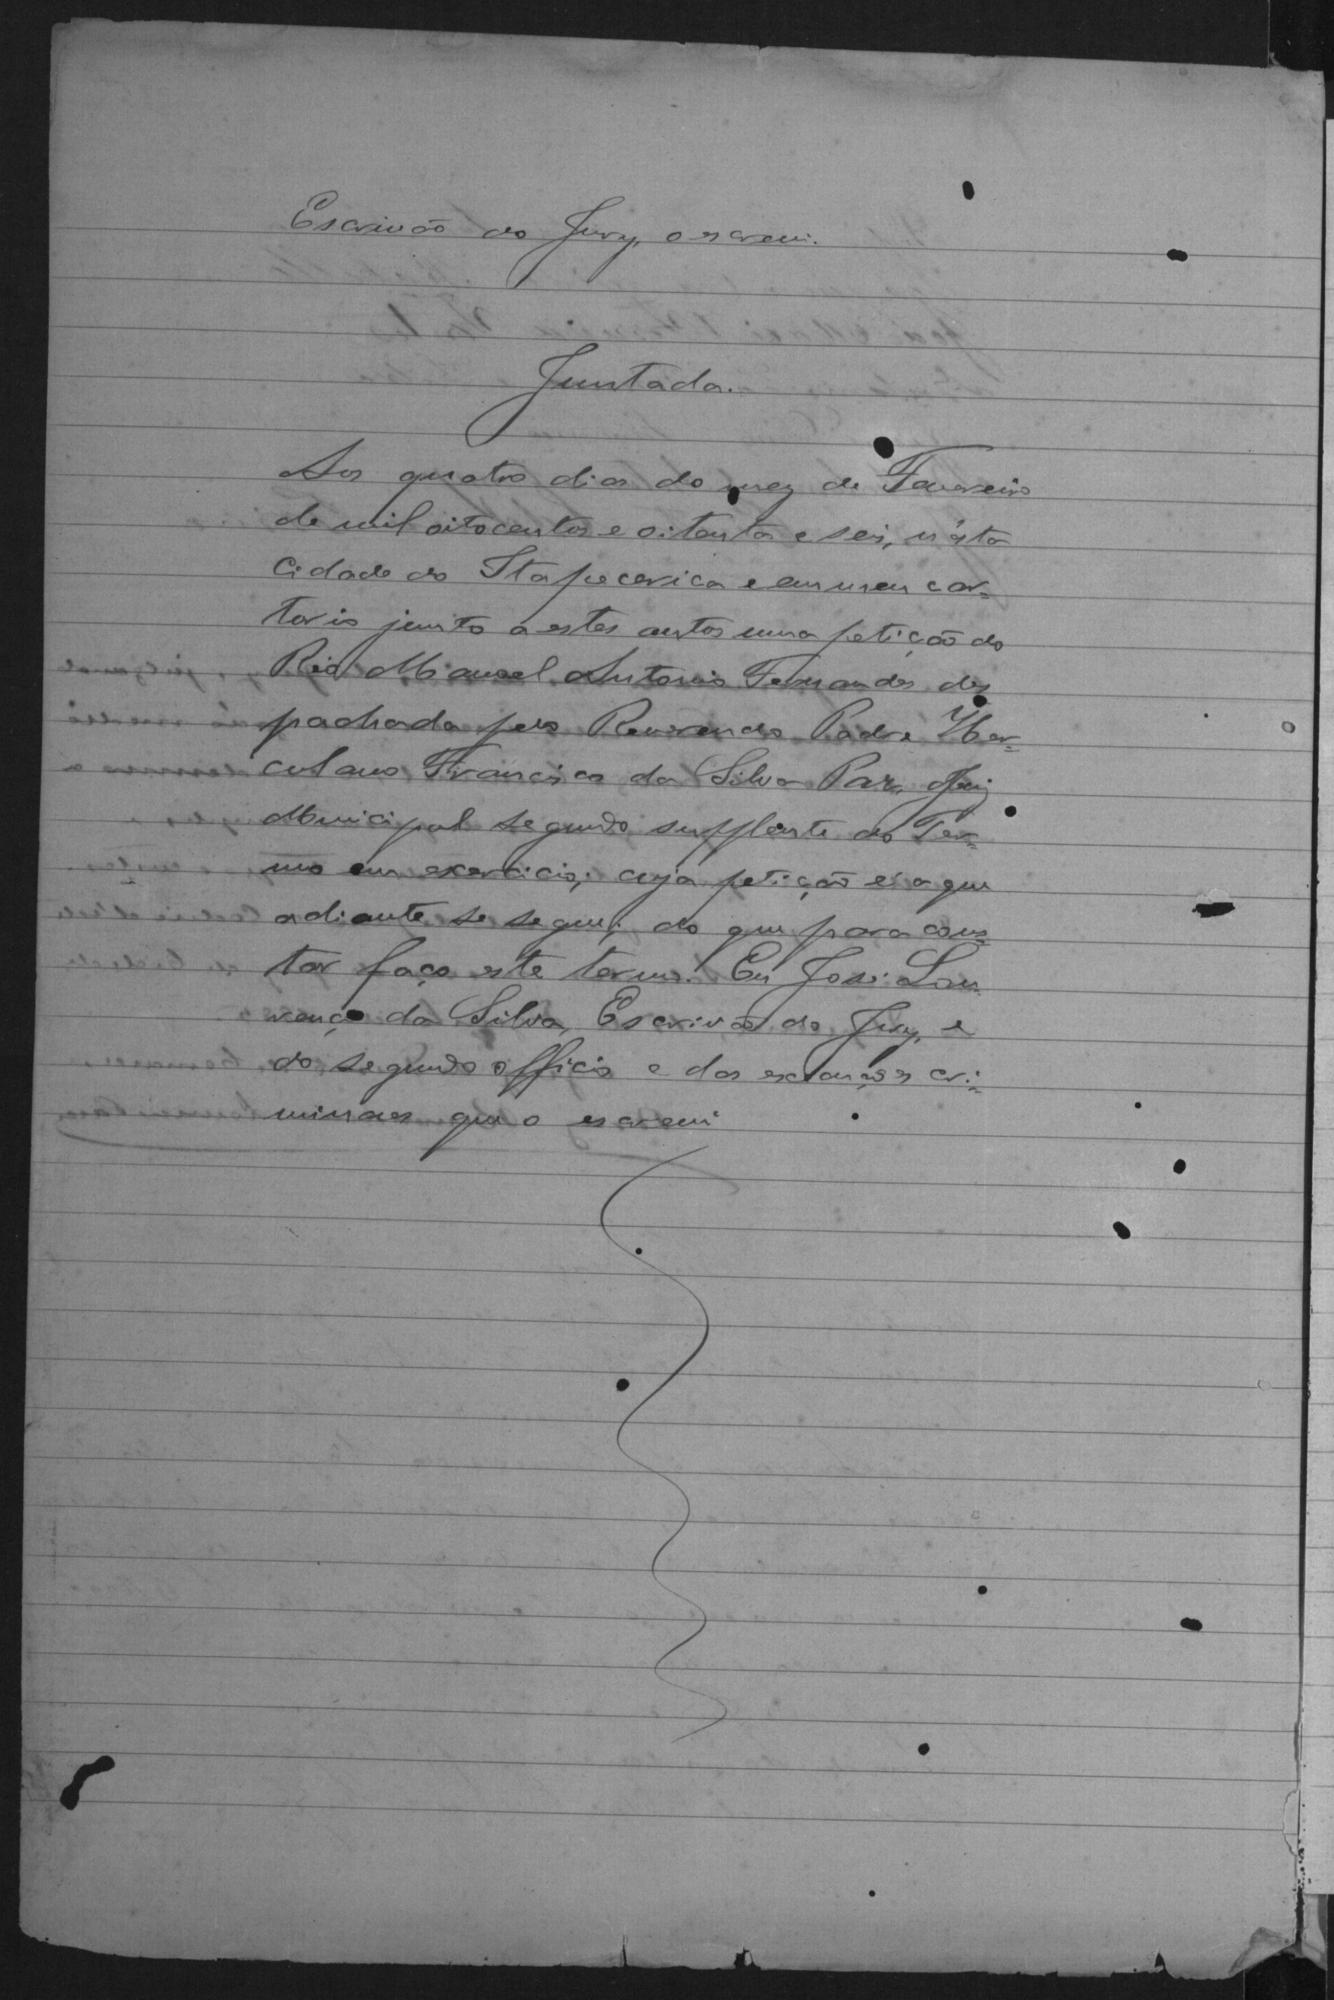 Escrivão do Jury, o escrevi.
Juntada.
Aos quatro dias do mez de Fevereiro
de mil oitocentos e oitenta e seis, n'ésta
Cidade do Itapecerica e em meu car-
torio junto a estes autos uma petição do
Réo Manoel Antonio Fernandes des
pachada pelo Reverendo Padre Her-
culano Francisco da Silva Paz, Juiz
Municipal segundo supplente do Ter-
mo em exercicio; cuja petição é a que
adiante se segue; do que para cons
tar faço este termo. Eu José Lou
renço da Silva, Escrivão do Jury, e
do segundo officio e das execuções cri-
minaes que o escrevi